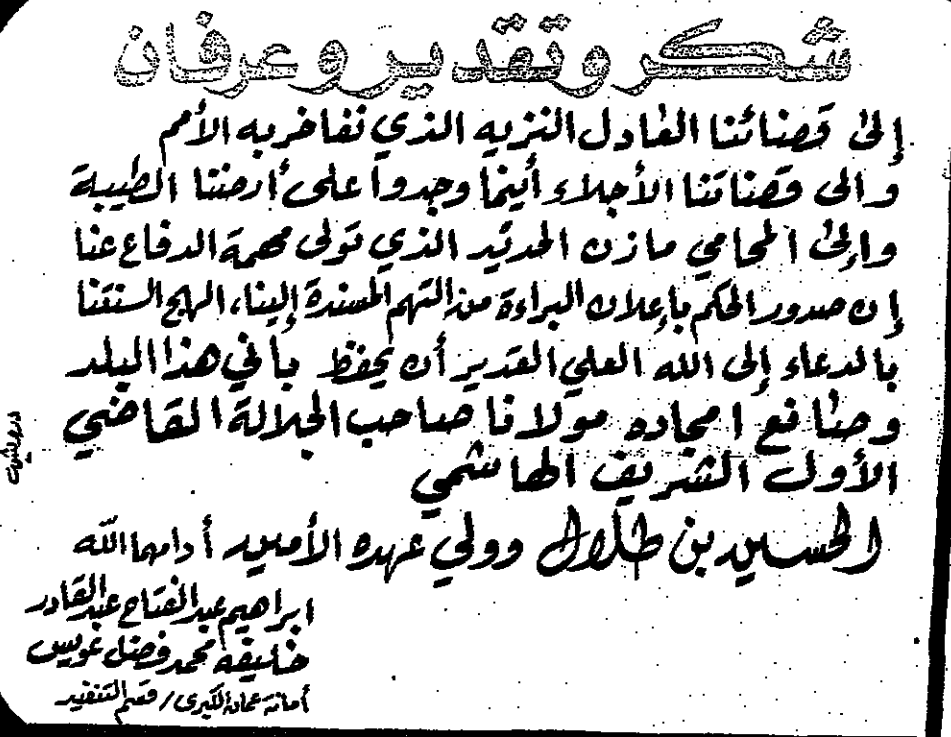 شكر وتقدير وعرفان
إلى قضائنا العادل النزيه الذي نفاخر به الأمم
والى قضاتنا الأجلاء أينما وجدوا على أرضنا الطيبة
وإلى المحامي مازن الحديد الذي تولى مهمة الدفاع عنا
إن صدور الحكم بإعلان البراءة من التهم المسندة إلينا، الهج السنتنا
بالدعاء إلى الله العلي القدير أن يحفظ باني هذا البلد
وصانع امجاده مولانا صاحب الجلالة القاضي
الأول الشريف الهاشمي
الحسين بن طلال وولي عهده الأمين أدامهما الله
ابراهيم عبد الفتاح عبد القادر
خليفه محمد فضل عويس
أمانة عمان الكبرى / قسم التنفيذ
درويش